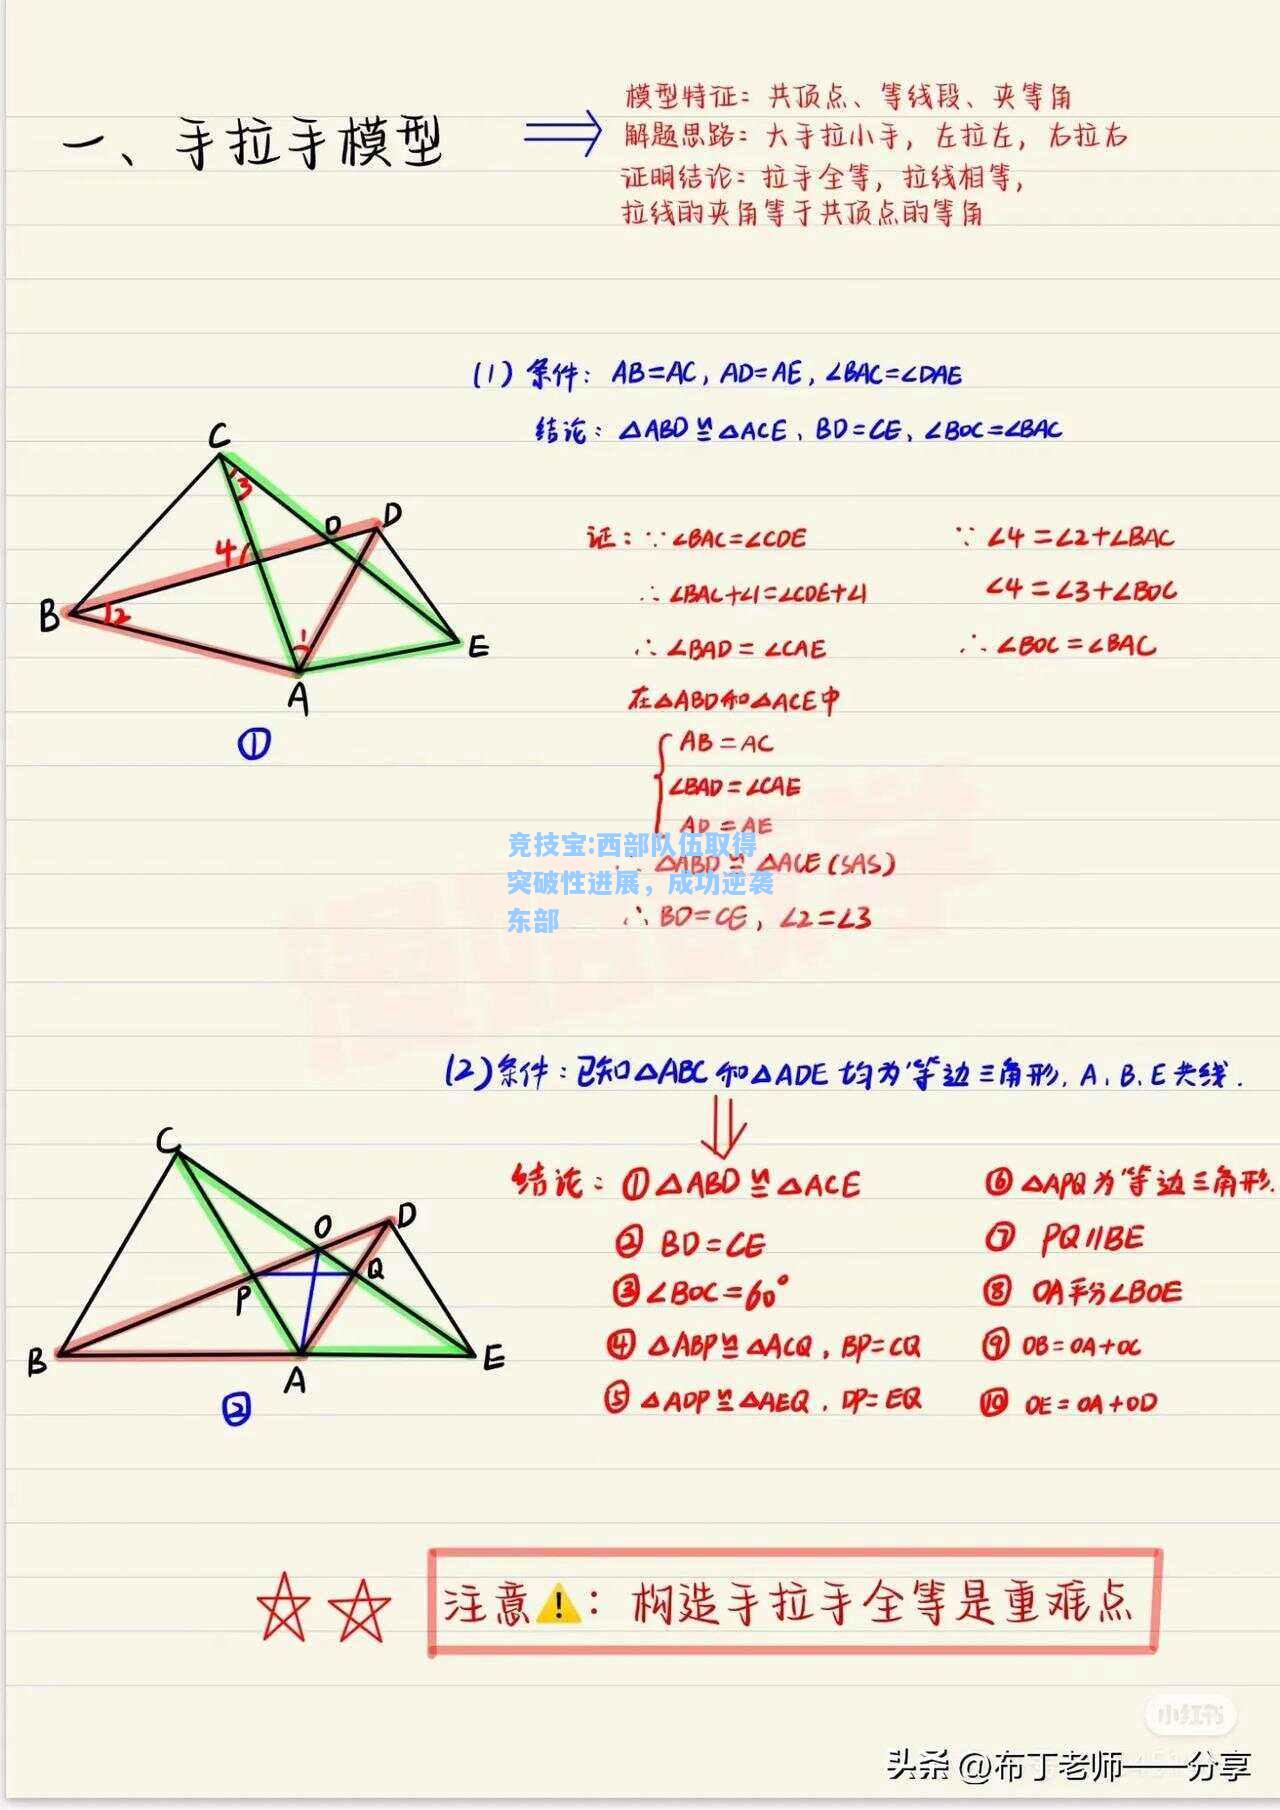 一、手拉手模型
模型特征：共顶点、等线段、夹等角
解题思路：大手拉小手，左拉左，右拉右
证明结论：拉手全等，拉线相等，
拉线的夹角等于共顶点的等角
(1) 条件：AB=AC, AD=AE, ∠BAC=∠DAE
结论：△ABD≌△ACE, BD=CE, ∠BOC=∠BAC
C
3
O
D
4
B
2
1
E
A
①
证：∵∠BAC=∠CDE
∴∠BAC+∠1=∠CDE+∠1
∴∠BAD=∠CAE
在△ABD和△ACE中
AB=AC
∠BAD=∠CAE
AD=AE
∴△ABD≌△ACE(SAS)
∴BD=CE, ∠2=∠3
∵∠4=∠2+∠BAC
∠4=∠3+∠BOC
∴∠BOC=∠BAC
竞技宝:西部队伍取得
突破性进展，成功逆袭
东部
(2)条件：已知△ABC和△ADE均为等边三角形, A, B, E共线.
C
O
D
P
Q
B
A
E
②
结论：①△ABD≌△ACE
② BD=CE
③ ∠BOC=60°
④ △ABP≌△ACQ, BP=CQ
⑤ △ADP≌△AEQ, DP=EQ
⑥ △APQ为等边三角形.
⑦ PQ∥BE
⑧ OA平分∠BOE
⑨ OB=OA+OC
⑩ OE=OA+OD
注意⚠️：构造手拉手全等是重难点
小红书
头条 @布丁老师——分享